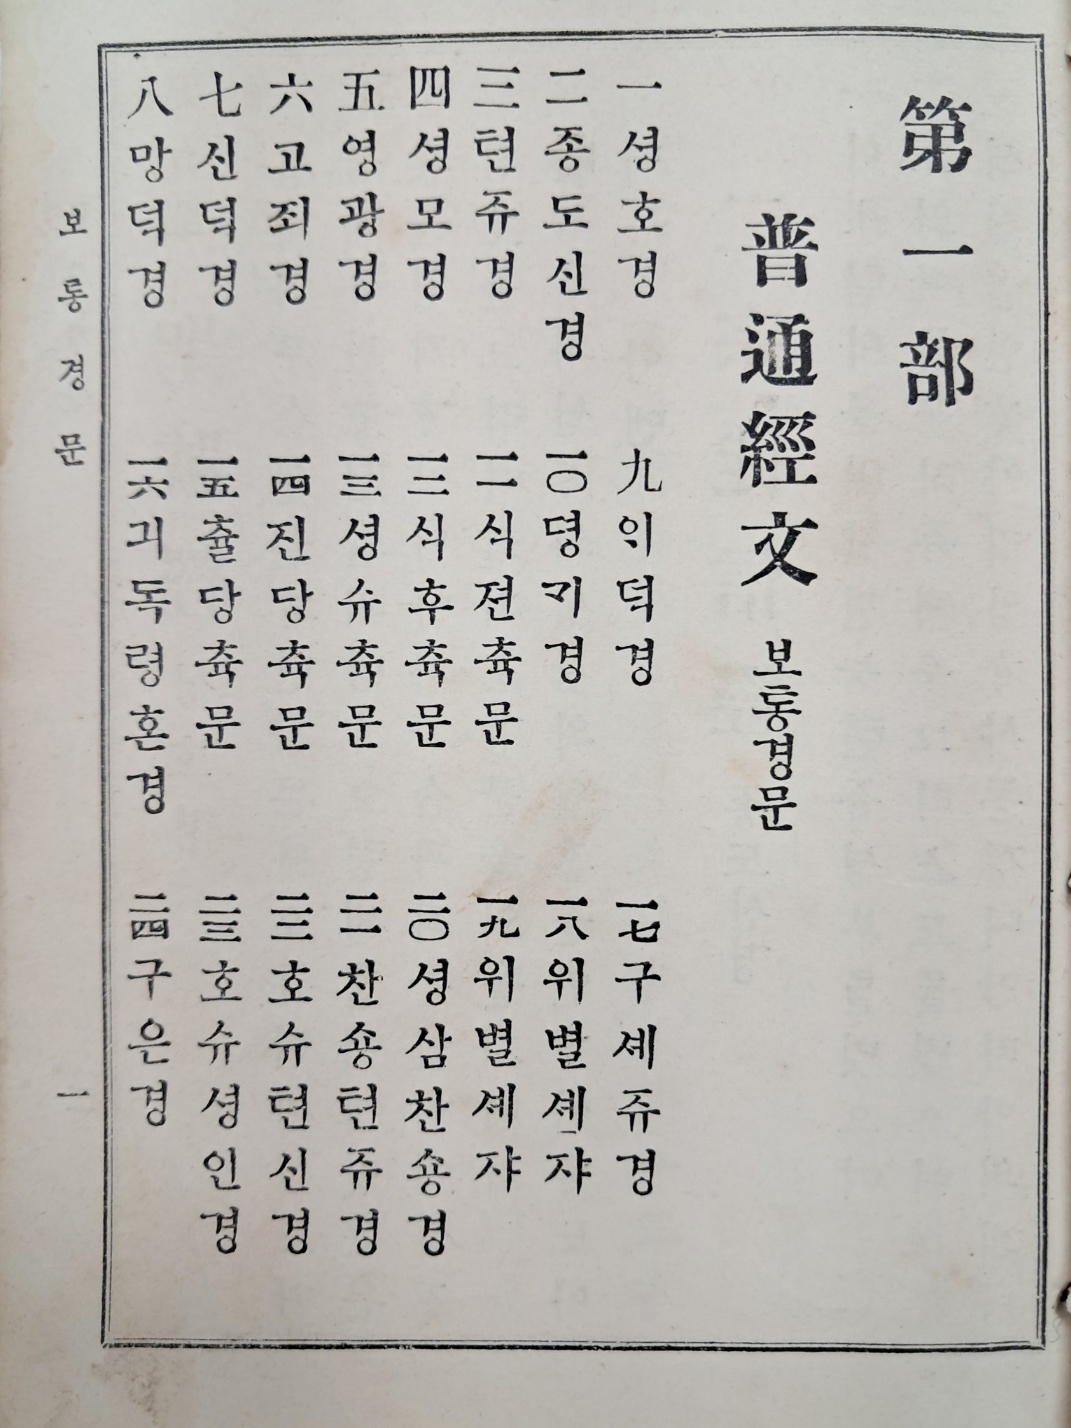 第一部
普通經文 보통경문
一 셩호경
二 종도신경
三 텬쥬경
四 셩모경
五 영광경
六 고죄경
七 신덕경
八 망덕경
九 ᄋᆡ덕경
一〇 뎡ᄀᆡ경
一一 식젼츅문
一二 식후츅문
一三 셩슈츅문
一四 진당츅문
一五 츌당츅문
一六 긔독령혼경
一七 구셰쥬경
一八 위별셰쟈
一九 위별셰쟈
二〇 셩삼찬숑경
二一 찬숑텬쥬경
二二 호슈텬신경
二三 호슈셩인경
二四 구은경
보통경문
一